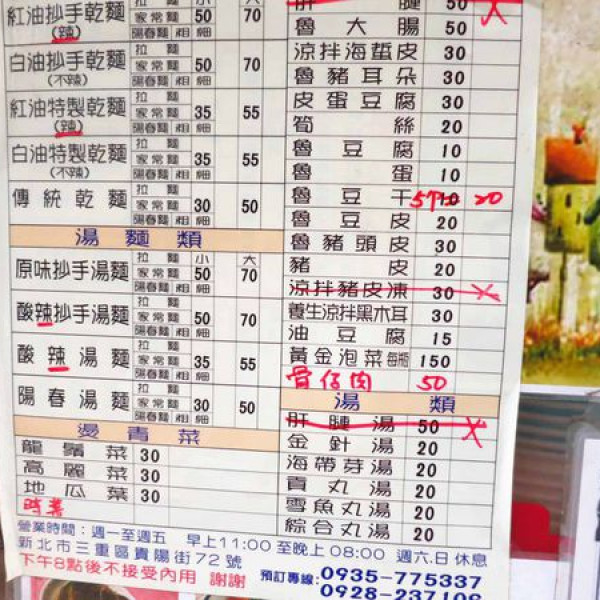 小 大
紅油抄手乾麵 拉麵 家常麵 陽春麵 粗 細 50 70
(辣)
白油抄手乾麵 拉麵 家常麵 陽春麵 粗 細 50 70
(不辣)
紅油特製乾麵 拉麵 家常麵 陽春麵 粗 細 35 55
(辣)
白油特製乾麵 拉麵 家常麵 陽春麵 粗 細 35 55
(不辣)
傳統乾麵 拉麵 家常麵 陽春麵 粗 細 30 50
湯麵類
小 大
原味抄手湯麵 拉麵 家常麵 陽春麵 粗 細 50 70
酸辣抄手湯麵 拉麵 家常麵 陽春麵 粗 細 50 70
酸辣湯麵 拉麵 家常麵 陽春麵 粗 細 35 55
陽春湯麵 拉麵 家常麵 陽春麵 粗 細 30 50
燙青菜
龍鬚菜 30
高麗菜 30
地瓜葉 30
時菜
肝腱 50
魯大腸 50
涼拌海蜇皮 30
魯豬耳朵 30
皮蛋豆腐 30
筍絲 20
魯豆腐 10
魯蛋 10
魯豆干 10 20
魯豆皮 20
魯豬頭皮 30
豬皮 20
涼拌豬皮凍 30
養生涼拌黑木耳 30
油豆腐 15
黃金泡菜 每瓶 150
骨佰肉 50
湯類
肝腱湯 50
金針湯 20
海帶芽湯 20
貢丸湯 20
雪魚丸湯 20
綜合丸湯 20
營業時間:週一至週五 早上11:00至晚上08:00 週六.日休息
新北市三重區貴陽街72號
下午8點後不接受內用 謝謝 預訂專線:0935-775337
0928-237108